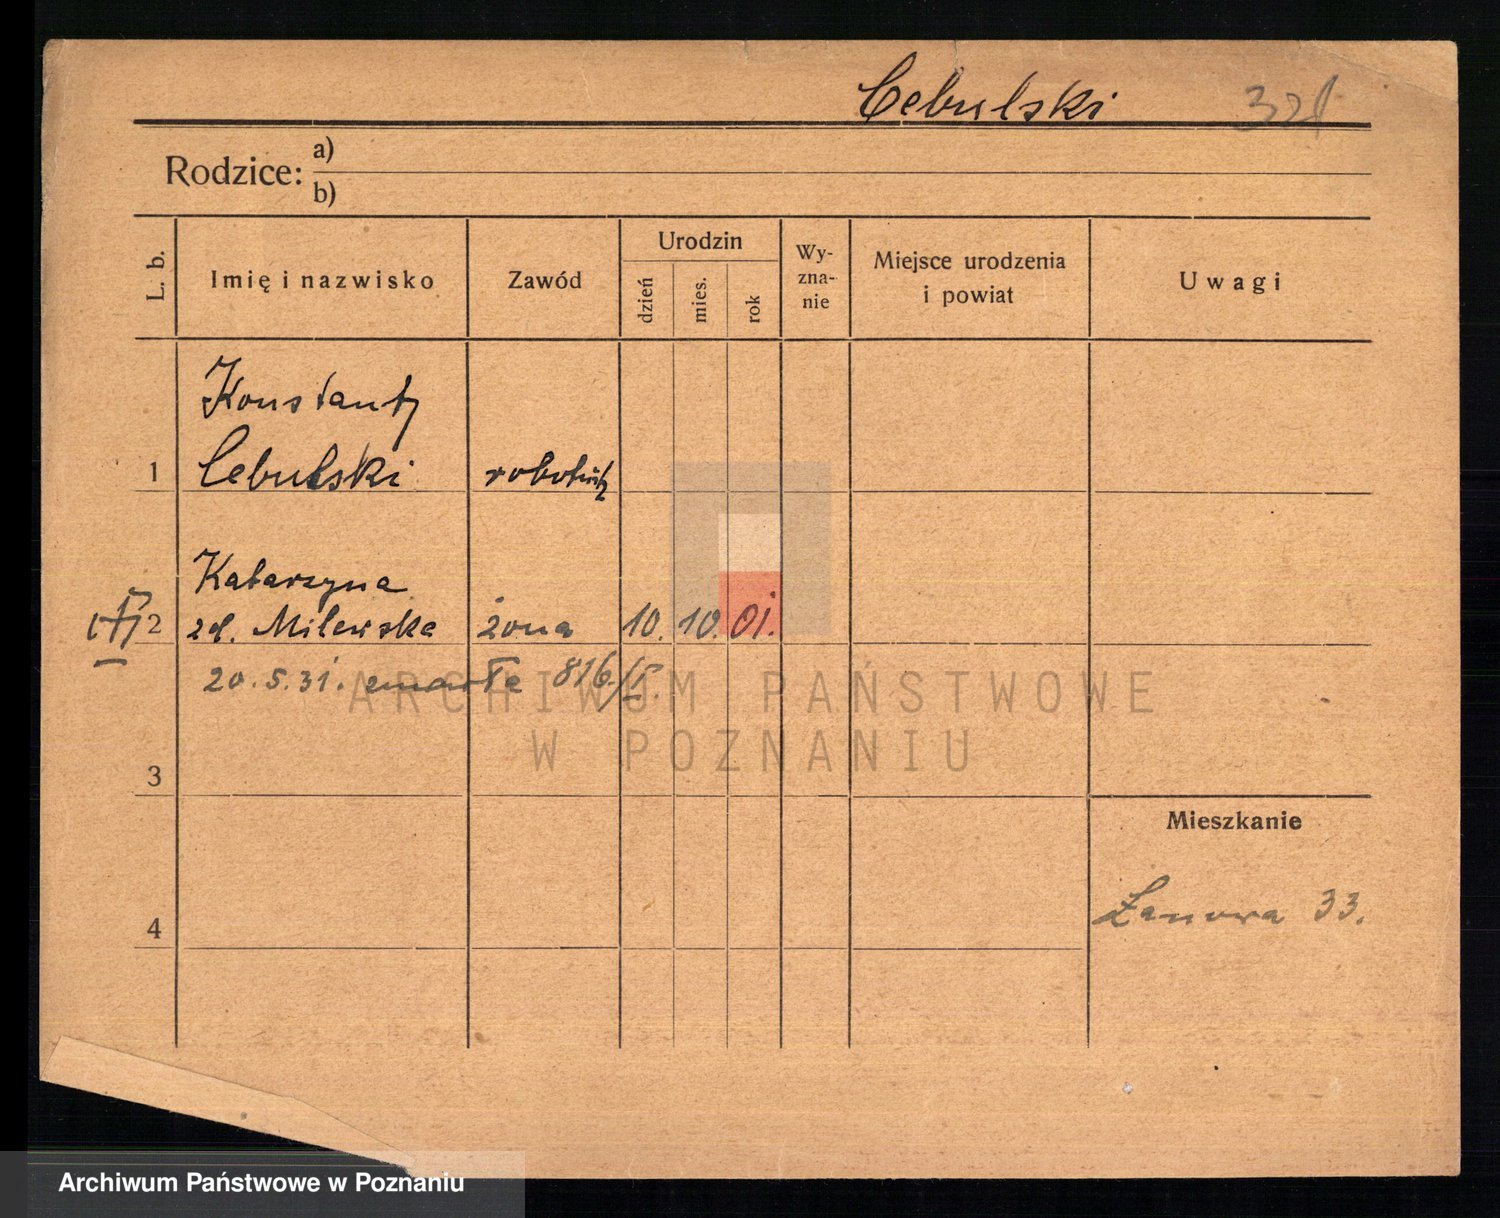 Cebulski 321
Rodzice: a)
b)
L. b.
Imię i nazwisko
Zawód
Urodzin
dzień
mies.
rok
Wy-
zna-
nie
Miejsce urodzenia
i powiat
Uwagi
Konstanty
1 Cebulski
Katarzyna
2 zd. Milewska żona 10. 10. 01.
20.5.31. zmarła 816/
ARCHIWUM PAŃSTWOWE
W POZNANIU
3
Mieszkanie
4
33.
Archiwum Państwowe w Poznaniu